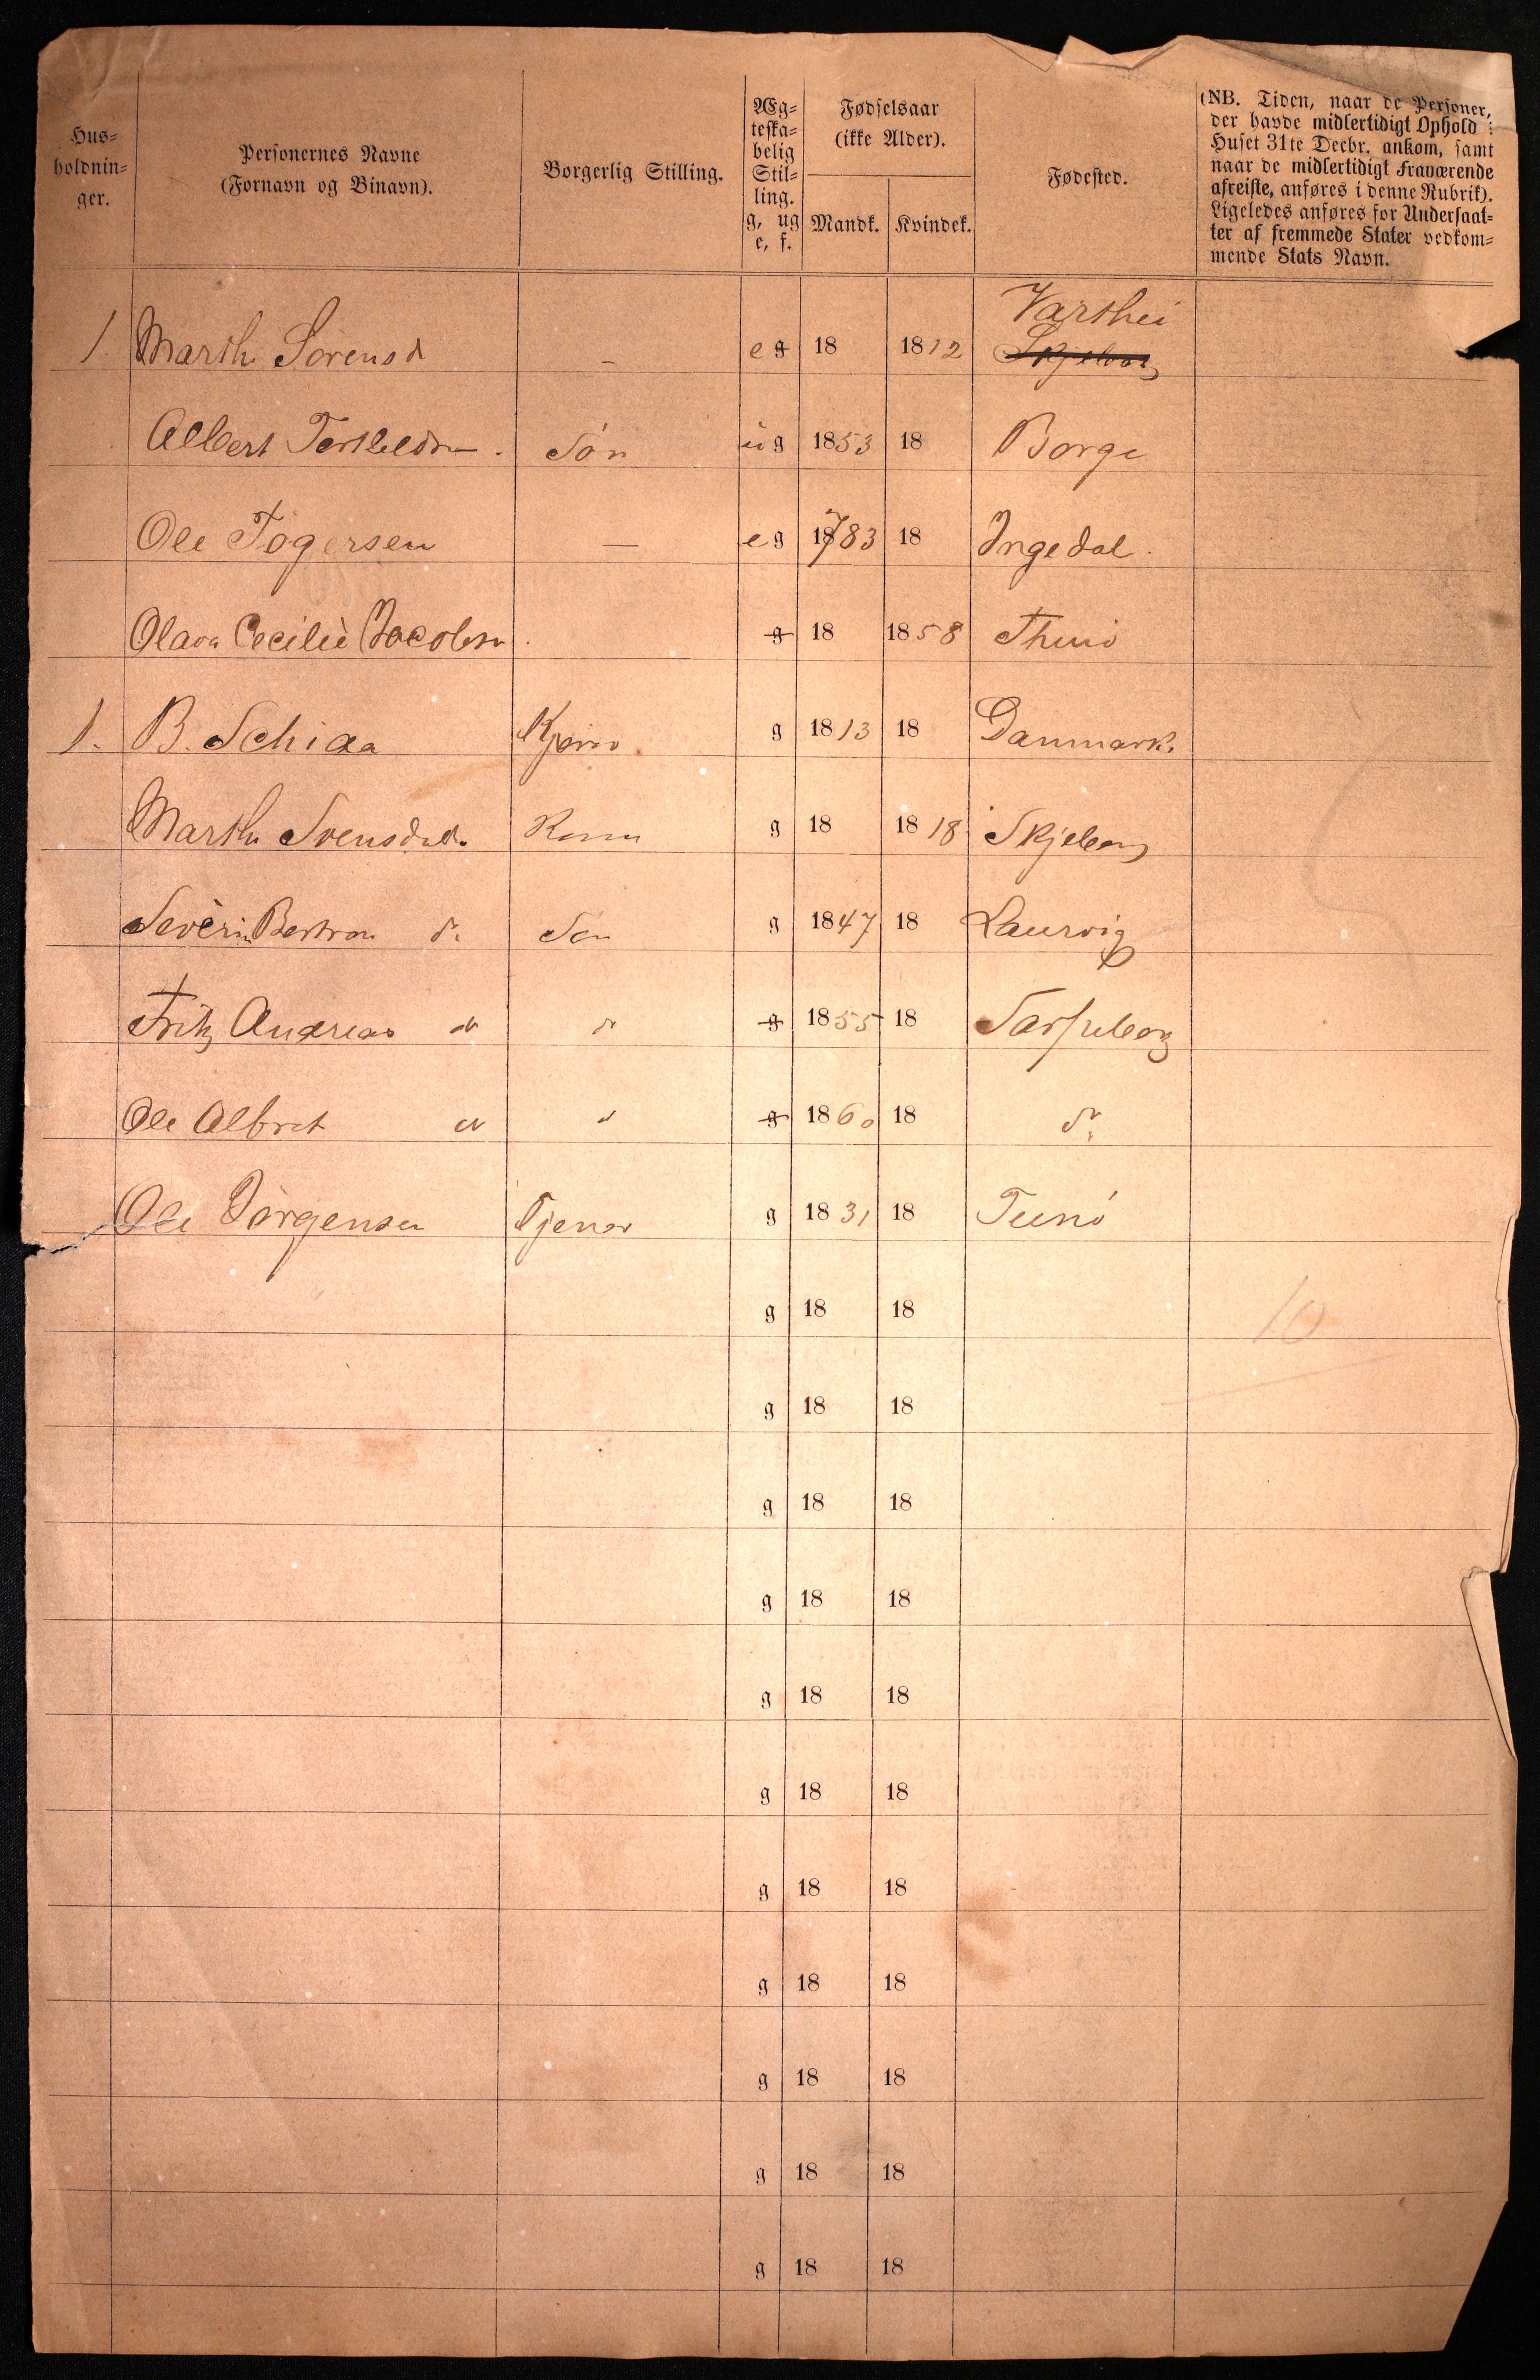 Hus-
holdnin-
ger.
Personernes Navne
(Fornavn og Binavn).
Borgerlig Stilling.
Æg-
teska-
belig
Stil-
ling.
g, ug
e, f.
Fødselsaar
(ikke Alder).
Mandk. Kvindek.
Fødested.
(NB. Tiden, naar de Personer,
der havde midlertidigt Ophold i
Huset 31te Decbr. ankom, samt
naar de midlertidigt Fraværende
afreiste, anføres i denne Rubrik).
Ligeledes anføres for Undersaat-
ter af fremmede Stater vedkom-
mende Stats Navn.
Varthei
1. Marthe Sørensd – e g 18 1812 Skjeberg
Albert Søn u g 1853 18 Borge
Ole — e g 1783 18 Ingedal
Olava Cecilie Jacobsn g 18 1858 Thunø
1. B. Schiaa g 1813 18 Danmark.
Marthe Svensdat. Kone g 18 1818 Skjeberg
Severin Bertran do Søn g 1847 18 Laurvig
Fritz Andreas do do g 1855 18 Sarpsborg
Ole Albret do do g 1860 18 do
Ole Jörgensen Tjener g 1831 18 Tunø
g 18 18
10
g 18 18
g 18 18
g 18 18
g 18 18
g 18 18
g 18 18
g 18 18
g 18 18
g 18 18
g 18 18